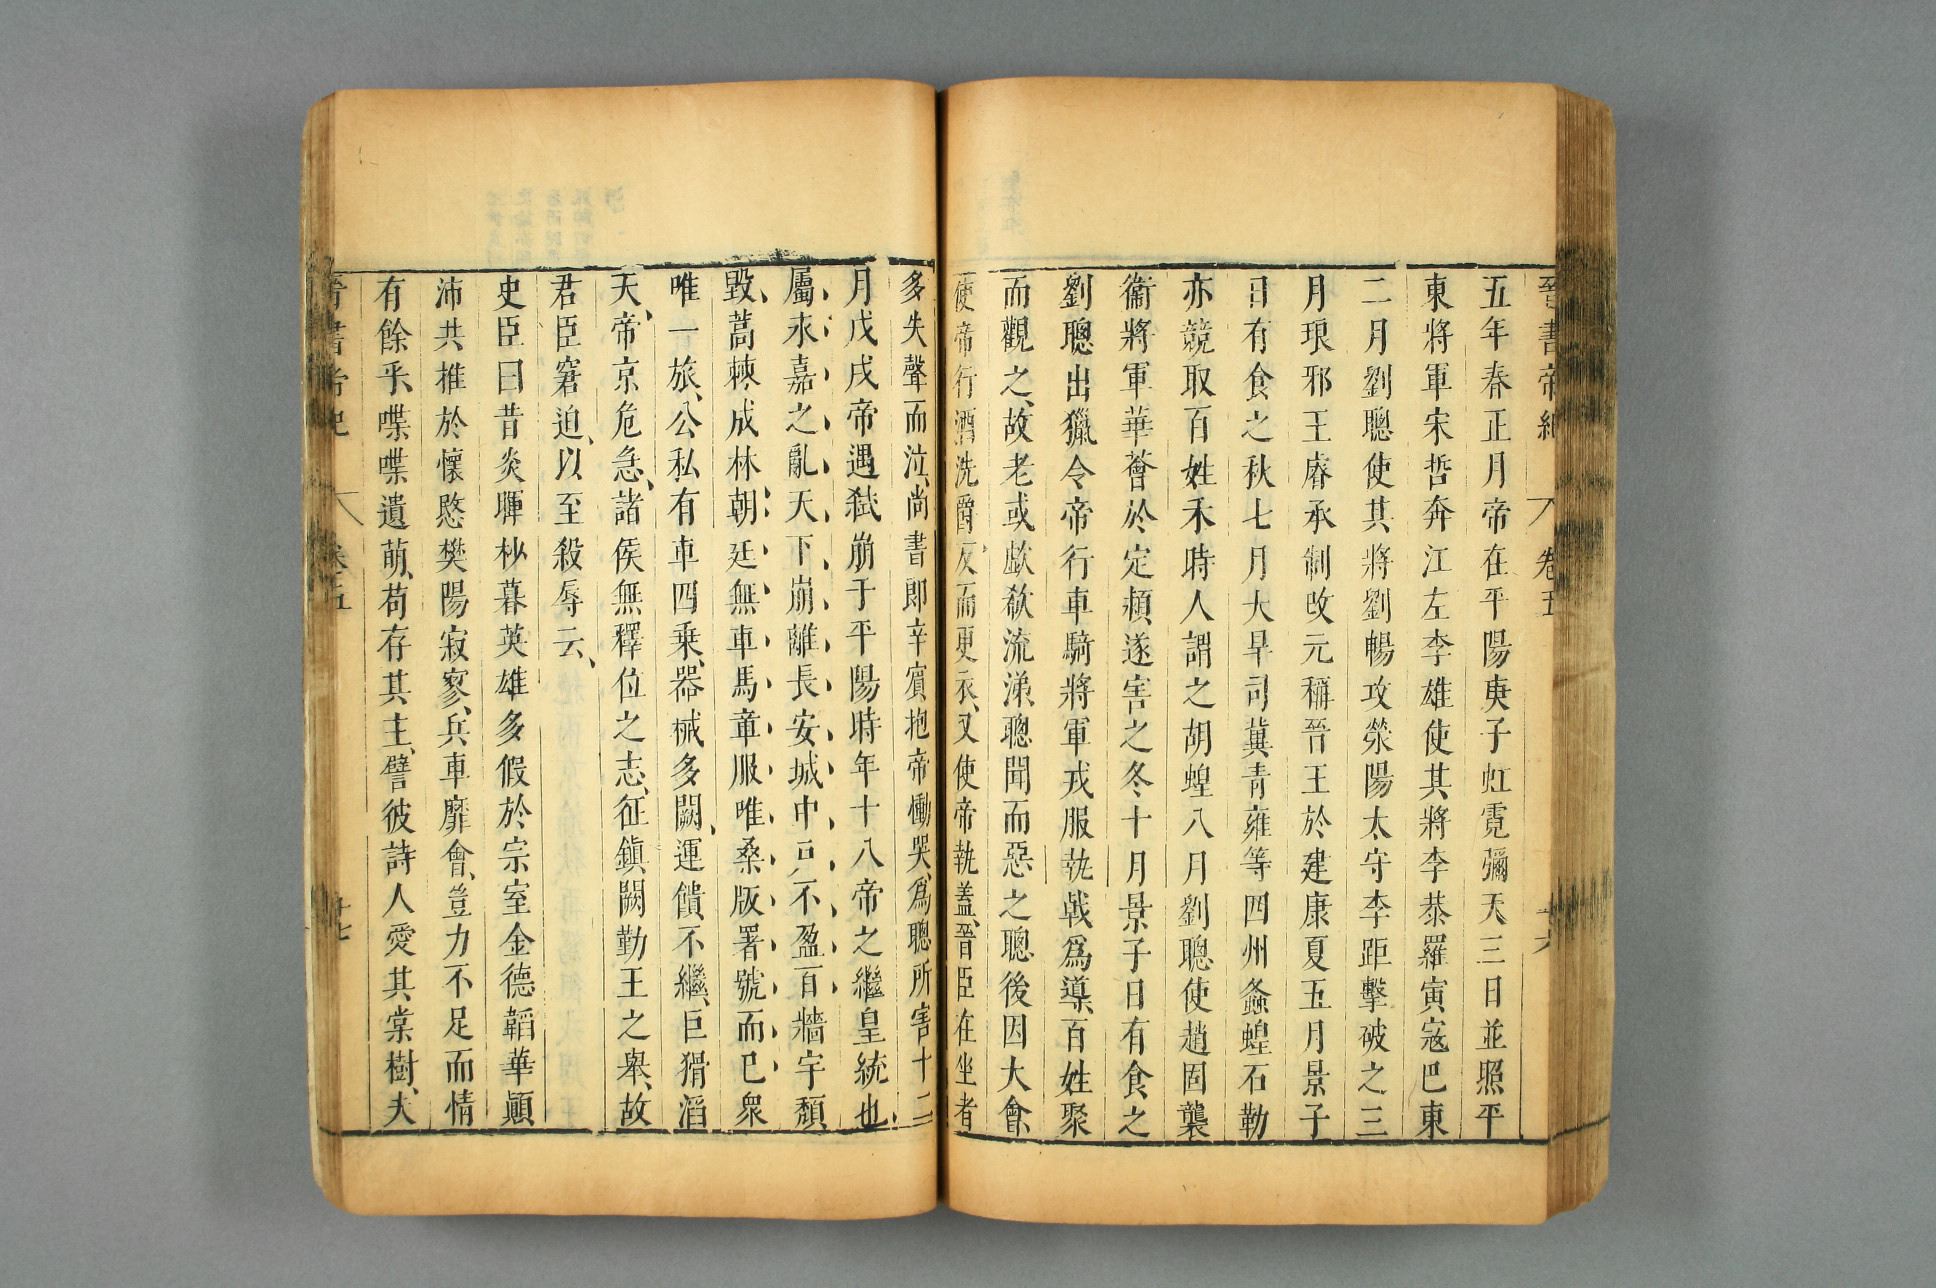 晉書帝紀 卷五 十六
五年春正月帝在平陽庚子虹霓彌天三日並照平
東將軍宋哲奔江左李雄使其將李恭羅寅寇巴東
二月劉聰使其將劉暢攻滎陽太守李距擊破之三
月琅邪王睿承制改元稱晉王於建康夏五月景子
日有食之秋七月大旱司冀青雍等四州螽蝗石勒
亦競取百姓禾時人謂之胡蝗八月劉聰使趙固襲
衞將軍華薈於定頴遂害之冬十月景子日有食之
劉聰出獵令帝行車騎將軍戎服執戟爲導百姓聚
而觀之、故老或歔欷流涕、聰聞而惡之聰後因大會
使帝行酒洗爵反而更衣、又使帝執蓋、晉臣在坐者
多失聲而泣、尚書郎辛賓抱帝慟哭、爲聰所害十二
月戊戌帝遇弑崩于平陽時年十八帝之繼皇統也
屬永嘉之亂天下崩離長安城中戸不盈百牆宇頽
毀、蒿棘成林朝廷無車馬章服唯桑版署號而已衆
唯一旅、公私有車四乗、器械多闕、運饋不繼、巨猾滔
天、帝京危急、諸侯無釋位之志、征鎮闕勤王之舉、故
君臣窘迫、以至殺辱云、
史臣曰昔炎暉杪暮英雄多假於宗室金德韜華顚
沛共推於懷愍樊陽寂寥、兵車靡會、豈力不足而情
有餘乎、喋喋遺萌、苟存其主、譬彼詩人愛其棠樹、夫
晉書帝紀 卷五 十七